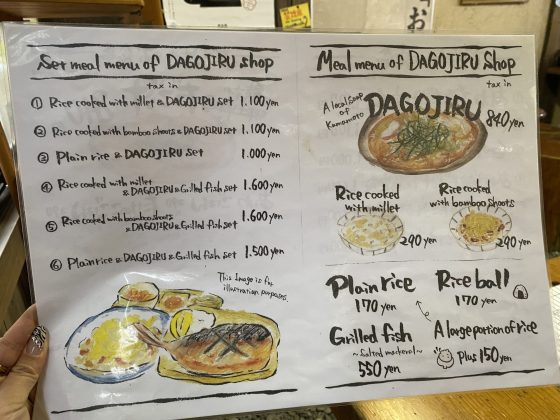 Set meal menu of DAGOJIRU shop
tax in
① Rice cooked with millet & DAGOJIRU set 1.100yen
② Rice cooked with bamboo shoots & DAGOJIRU set 1.100yen
③ Plain rice & DAGOJIRU set 1.000yen
④ Rice cooked with millet
& DAGOJIRU & Grilled fish set 1.600yen
⑤ Rice cooked with bamboo shoots
& DAGOJIRU & Grilled fish set 1.600yen
⑥ Plain rice & DAGOJIRU & Grilled fish set 1.500yen
This Image is for
illustration purposes.
Meal menu of DAGOJIRU Shop
tax in
A local Soup
of
Kumamoto
DAGOJIRU
840yen
Rice cooked
with millet
290 yen
Rice cooked
with bamboo shoots
290 yen
Plain rice
170 yen
Rice ball
170 yen
Grilled fish
~Salted mackeral~
550 yen
A large portion of rice
Plus 150 yen
お